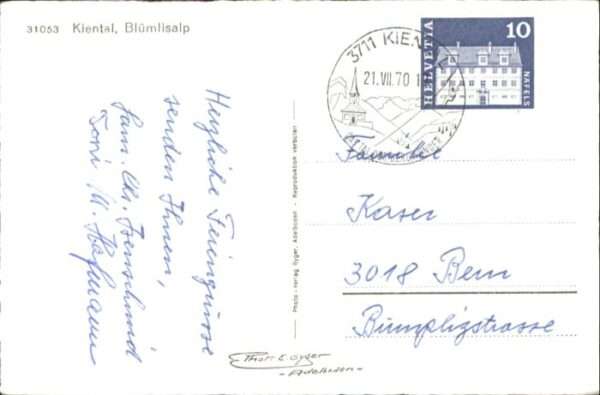 31053 Kiental, Blümlisalp
Herzliche Feriengrüsse
senden Ihnen,
Fam. Chr. Isenschmid
Toni u. Hofmann
Photo-verlag Gyger, Adelboden - Reproduktion verboten
3711 KIENTAL
21.VII.70
HELVETIA
10
NÄFELS
Familie
Kaser
3018 Bern
Bümplizstrasse
Photo E. Gyger
- Adelboden -